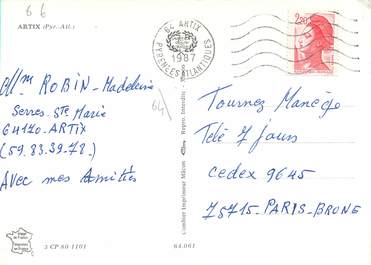 66
ARTIX (Pyr.-Atl.)
64 ARTIX
1987
PYRENEES ATLANTIQUES
2,20
Mlle M ROBIN-Madeleine
Serres-Ste Marie
64170-ARTIX
(59.83.39-78.)
Avec mes Amitiés
64
Combier Imprimeur Mâcon
Repro. Interdite
Tournez Manège
Télé 7 Jours
Cedex 9645
75715-PARIS-BRUNE
3 CP 80 1101
64.061